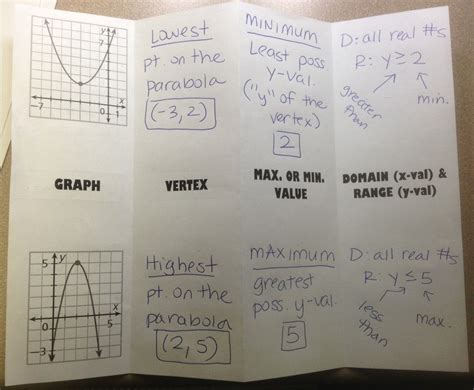 y
7
-7
0
1
x
Lowest
pt. on the
parabola
(-3, 2)
MINIMUM
Least poss
y-val.
("y" of the
vertex)
2
D: all real #s
R: y ≥ 2
greater than
min.
GRAPH
VERTEX
MAX. OR MIN.
VALUE
DOMAIN (x-val) &
RANGE (y-val)
5
y
0
5
x
-3
Highest
pt. on the
parabola
(2, 5)
MAXIMUM
greatest
poss. y-val.
5
D: all real #s
R: y ≤ 5
less than
max.